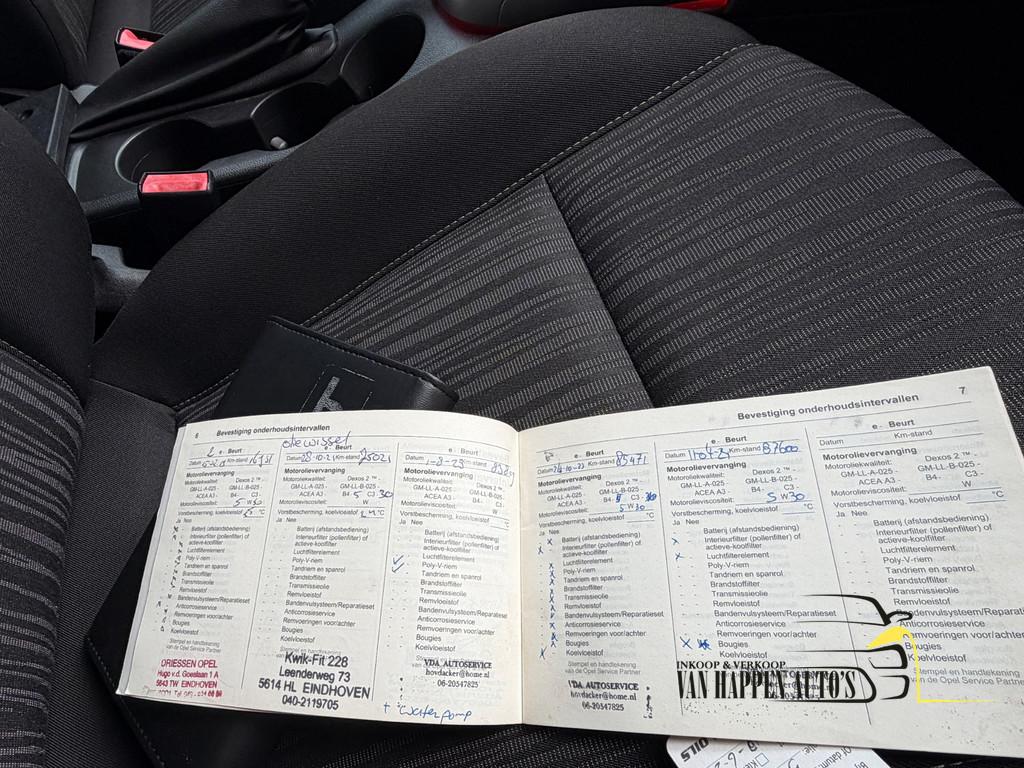 6 Bevestiging onderhoudsintervallen
e- Beurt
Datum Km-stand
Motorolievervanging
Motorkwaliteit: Dexos 2 ™ -
GM-LL-A-025 - GM-LL-B-025 -
ACEA A3 - B4- C3 -
Motorolieviscositeit: 5 W
Vorstbescherming, koelvloeistof °C
Ja Nee
Batterij (afstandsbediening)
Interieurfilter (pollenfilter) of
actieve-koolfilter
Luchtfilterelement
Poly-V-riem
Tandriem en spanrol
Brandstoffilter
Transmissieolie
Remvloeistof
Bandenvulsysteem/Reparatieset
Anticorrosieservice
Remvoeringen voor/achter
Bougies
Koelvloeistof
Stempel en handtekening
van de Opel Service Partner
DRIESSEN OPEL
Hugo v.d. Goeslaan 1 A
5643 TW EINDHOVEN
oliewissel
e- Beurt
Datum 28-10-21 Km-stand 75021
Motorolievervanging
Motoroliekwaliteit: Dexos 2 ™ -
GM-LL-A-025 - GM-LL-B-025 -
ACEA A3 - B4- 5 C3 - 30
Motorolieviscositeit: W
Vorstbescherming, koelvloeistof °C
Ja Nee
Batterij (afstandsbediening)
Interieurfilter (pollenfilter) of
actieve-koolfilter
Luchtfilterelement
Poly-V-riem
Tandriem en spanrol
Brandstoffilter
Transmissieolie
Remvloeistof
Bandenvulsysteem/Reparatieset
Anticorrosieservice
Remvoeringen voor/achter
Bougies
Koelvloeistof
Kwik-Fit 228
Leenderweg 73
5614 HL EINDHOVEN
040-2119705
e- Beurt
Datum 1-8-23 Km-stand
Motorolievervanging
Motoroliekwaliteit: Dexos 2 ™ -
GM-LL-A-025 - GM-LL-B-025 -
ACEA A3 - B4- C3 -
Motorolieviscositeit: W
Vorstbescherming, koelvloeistof °C
Ja Nee
Batterij (afstandsbediening)
Interieurfilter (pollenfilter) of
actieve-koolfilter
Luchtfilterelement
Poly-V-riem
Tandriem en spanrol
Brandstoffilter
Transmissieolie
Remvloeistof
Bandenvulsysteem/Reparatieset
Anticorrosieservice
Remvoeringen voor/achter
Bougies
Koelvloeistof
VDA AUTOSERVICE
hovdacker@home.nl
06-20547825
+ Waterpomp
Bevestiging onderhoudsintervallen 7
e- Beurt
Datum 24-10-23 Km-stand 85471
Motorolievervanging
Motoroliekwaliteit: Dexos 2 ™ -
GM-LL-A-025 - GM-LL-B-025 -
ACEA A3 - B4- C3 -
Motorolieviscositeit: 5 W 30
Vorstbescherming, koelvloeistof °C
Ja Nee
Batterij (afstandsbediening)
Interieurfilter (pollenfilter) of
actieve-koolfilter
Luchtfilterelement
Poly-V-riem
Tandriem en spanrol
Brandstoffilter
Transmissieolie
Remvloeistof
Bandenvulsysteem/Reparatieset
Anticorrosieservice
Remvoeringen voor/achter
Bougies
Koelvloeistof
Stempel en handtekening
van de Opel Service Partner
VDA AUTOSERVICE
hovdacker@home.nl
06-20547825
e- Beurt
Datum Km-stand 87600
Motorolievervanging
Motoroliekwaliteit: Dexos 2 ™ -
GM-LL-A-025 - GM-LL-B-025 -
ACEA A3 - B4- C3 -
Motorolieviscositeit: 5 W 30
Vorstbescherming, koelvloeistof °C
Ja Nee
Batterij (afstandsbediening)
Interieurfilter (pollenfilter) of
actieve-koolfilter
Luchtfilterelement
Poly-V-riem
Tandriem en spanrol
Brandstoffilter
Transmissieolie
Remvloeistof
Bandenvulsysteem/Reparatieset
Anticorrosieservice
Remvoeringen voor/achter
Bougies
Koelvloeistof
e- Beurt
Datum Km-stand
Motorolievervanging
Motoroliekwaliteit: Dexos 2 ™ -
GM-LL-A-025 - GM-LL-B-025 -
ACEA A3 - B4- C3 -
Motorolieviscositeit: W
Vorstbescherming, koelvloeistof °C
Ja Nee
Batterij (afstandsbediening)
Interieurfilter (pollenfilter) of
actieve-koolfilter
Luchtfilterelement
Poly-V-riem
Tandriem en spanrol
Brandstoffilter
Transmissieolie
Remvloeistof
Bandenvulsysteem/Reparatieset
Anticorrosieservice
Remvoeringen voor/achter
Bougies
Koelvloeistof
INKOOP & VERKOOP
VAN HAPPEN AUTO'S